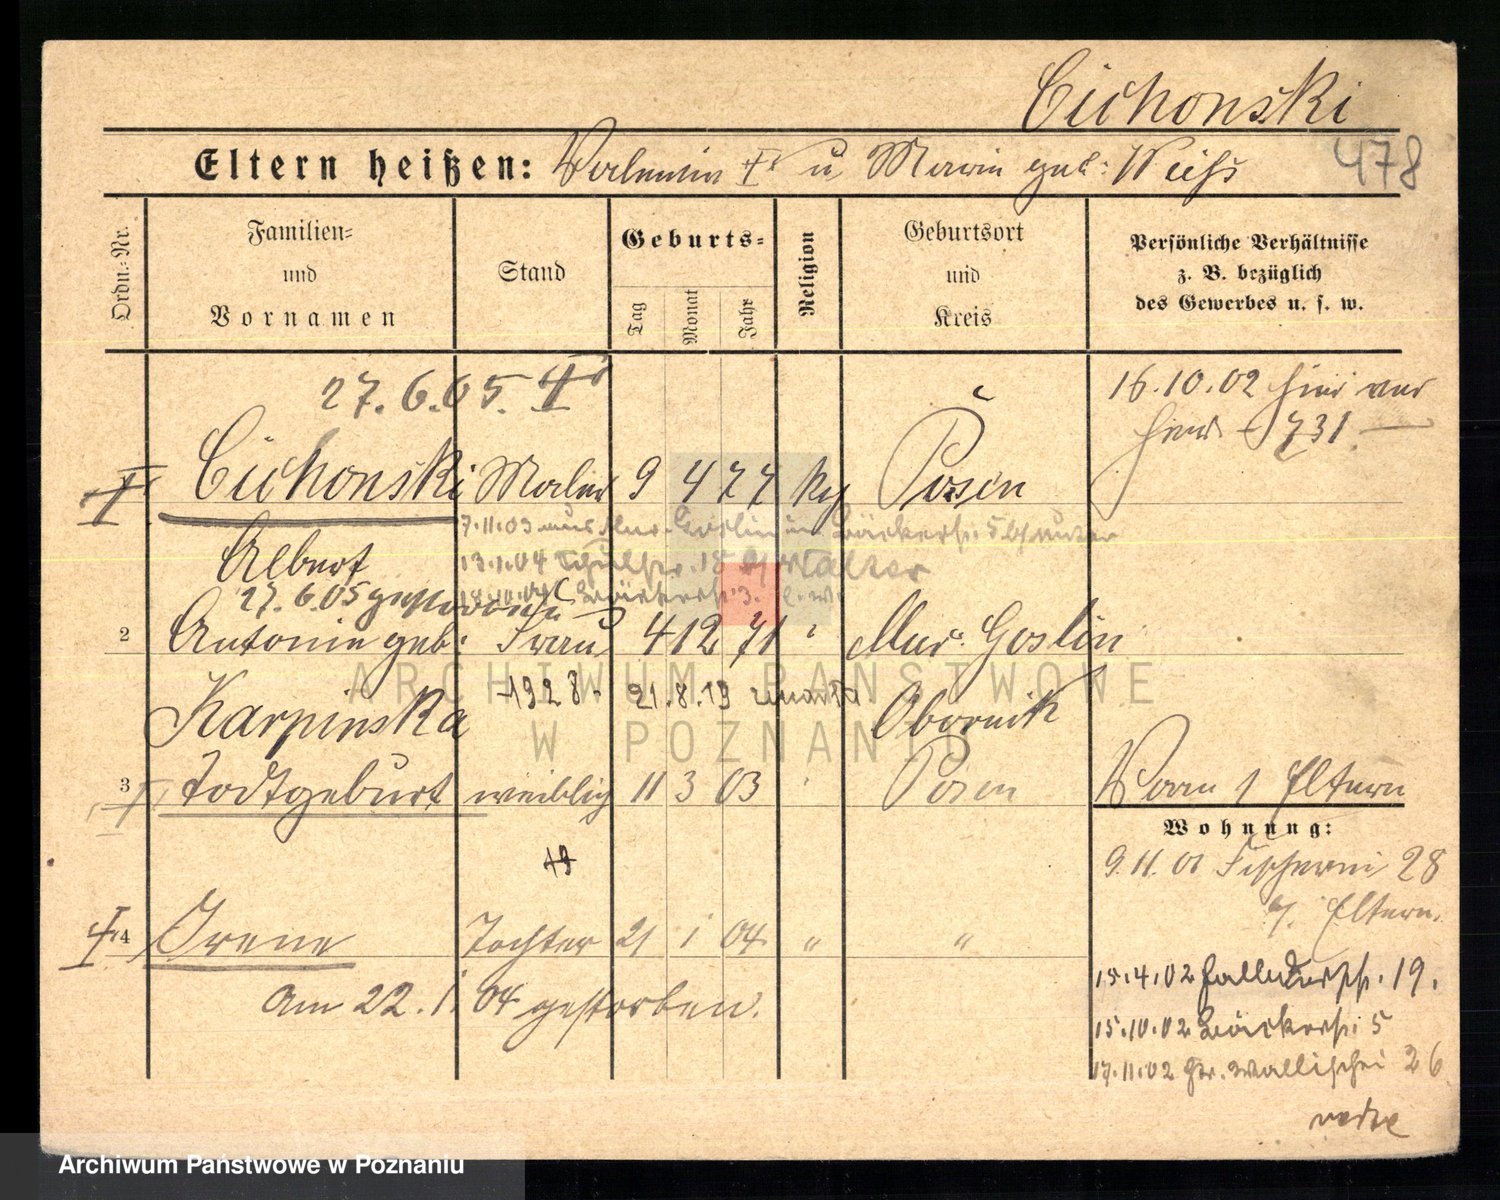 Cichonski
478
Eltern heißen: Valentin u. Marie geb: Weiß
Ordn.-Nr.
Familien-
und
Vornamen
Stand
Geburts-
Tag
Monat
Jahr
Religion
Geburtsort
und
Kreis
Persönliche Verhältnisse
z. B. bezüglich
des Gewerbes u. s. w.
27.6.05.
16.10.02
731
Cichonski Maler 9 4 77 kg Posen
7.11.03 aus Mur. Goslin Bäckerstr. 5
Albert
13.1.04 Schulstr. 18
27.6.05 gestorben
18.10.04 Bäckerstr. 3.
2 Antonie geb. Frau 4 12 71 Mur. Goslin
Karpinska 1928. 21.8.19 Obornik
3 Todtgeburt weiblich 11 3 03 Posen
Eltern
Wohnung:
9.11.01 Fischerei 28
b/. Eltern.
19
4 Irene Tochter 21 1 04 " "
am 22.1.04 gestorben.
15.4.02 19.
15.10.02 Bäckerstr. 5
17.11.02 Gr. Wallischei 26
ARCHIWUM PAŃSTWOWE
W POZNANIU
Archiwum Państwowe w Poznaniu